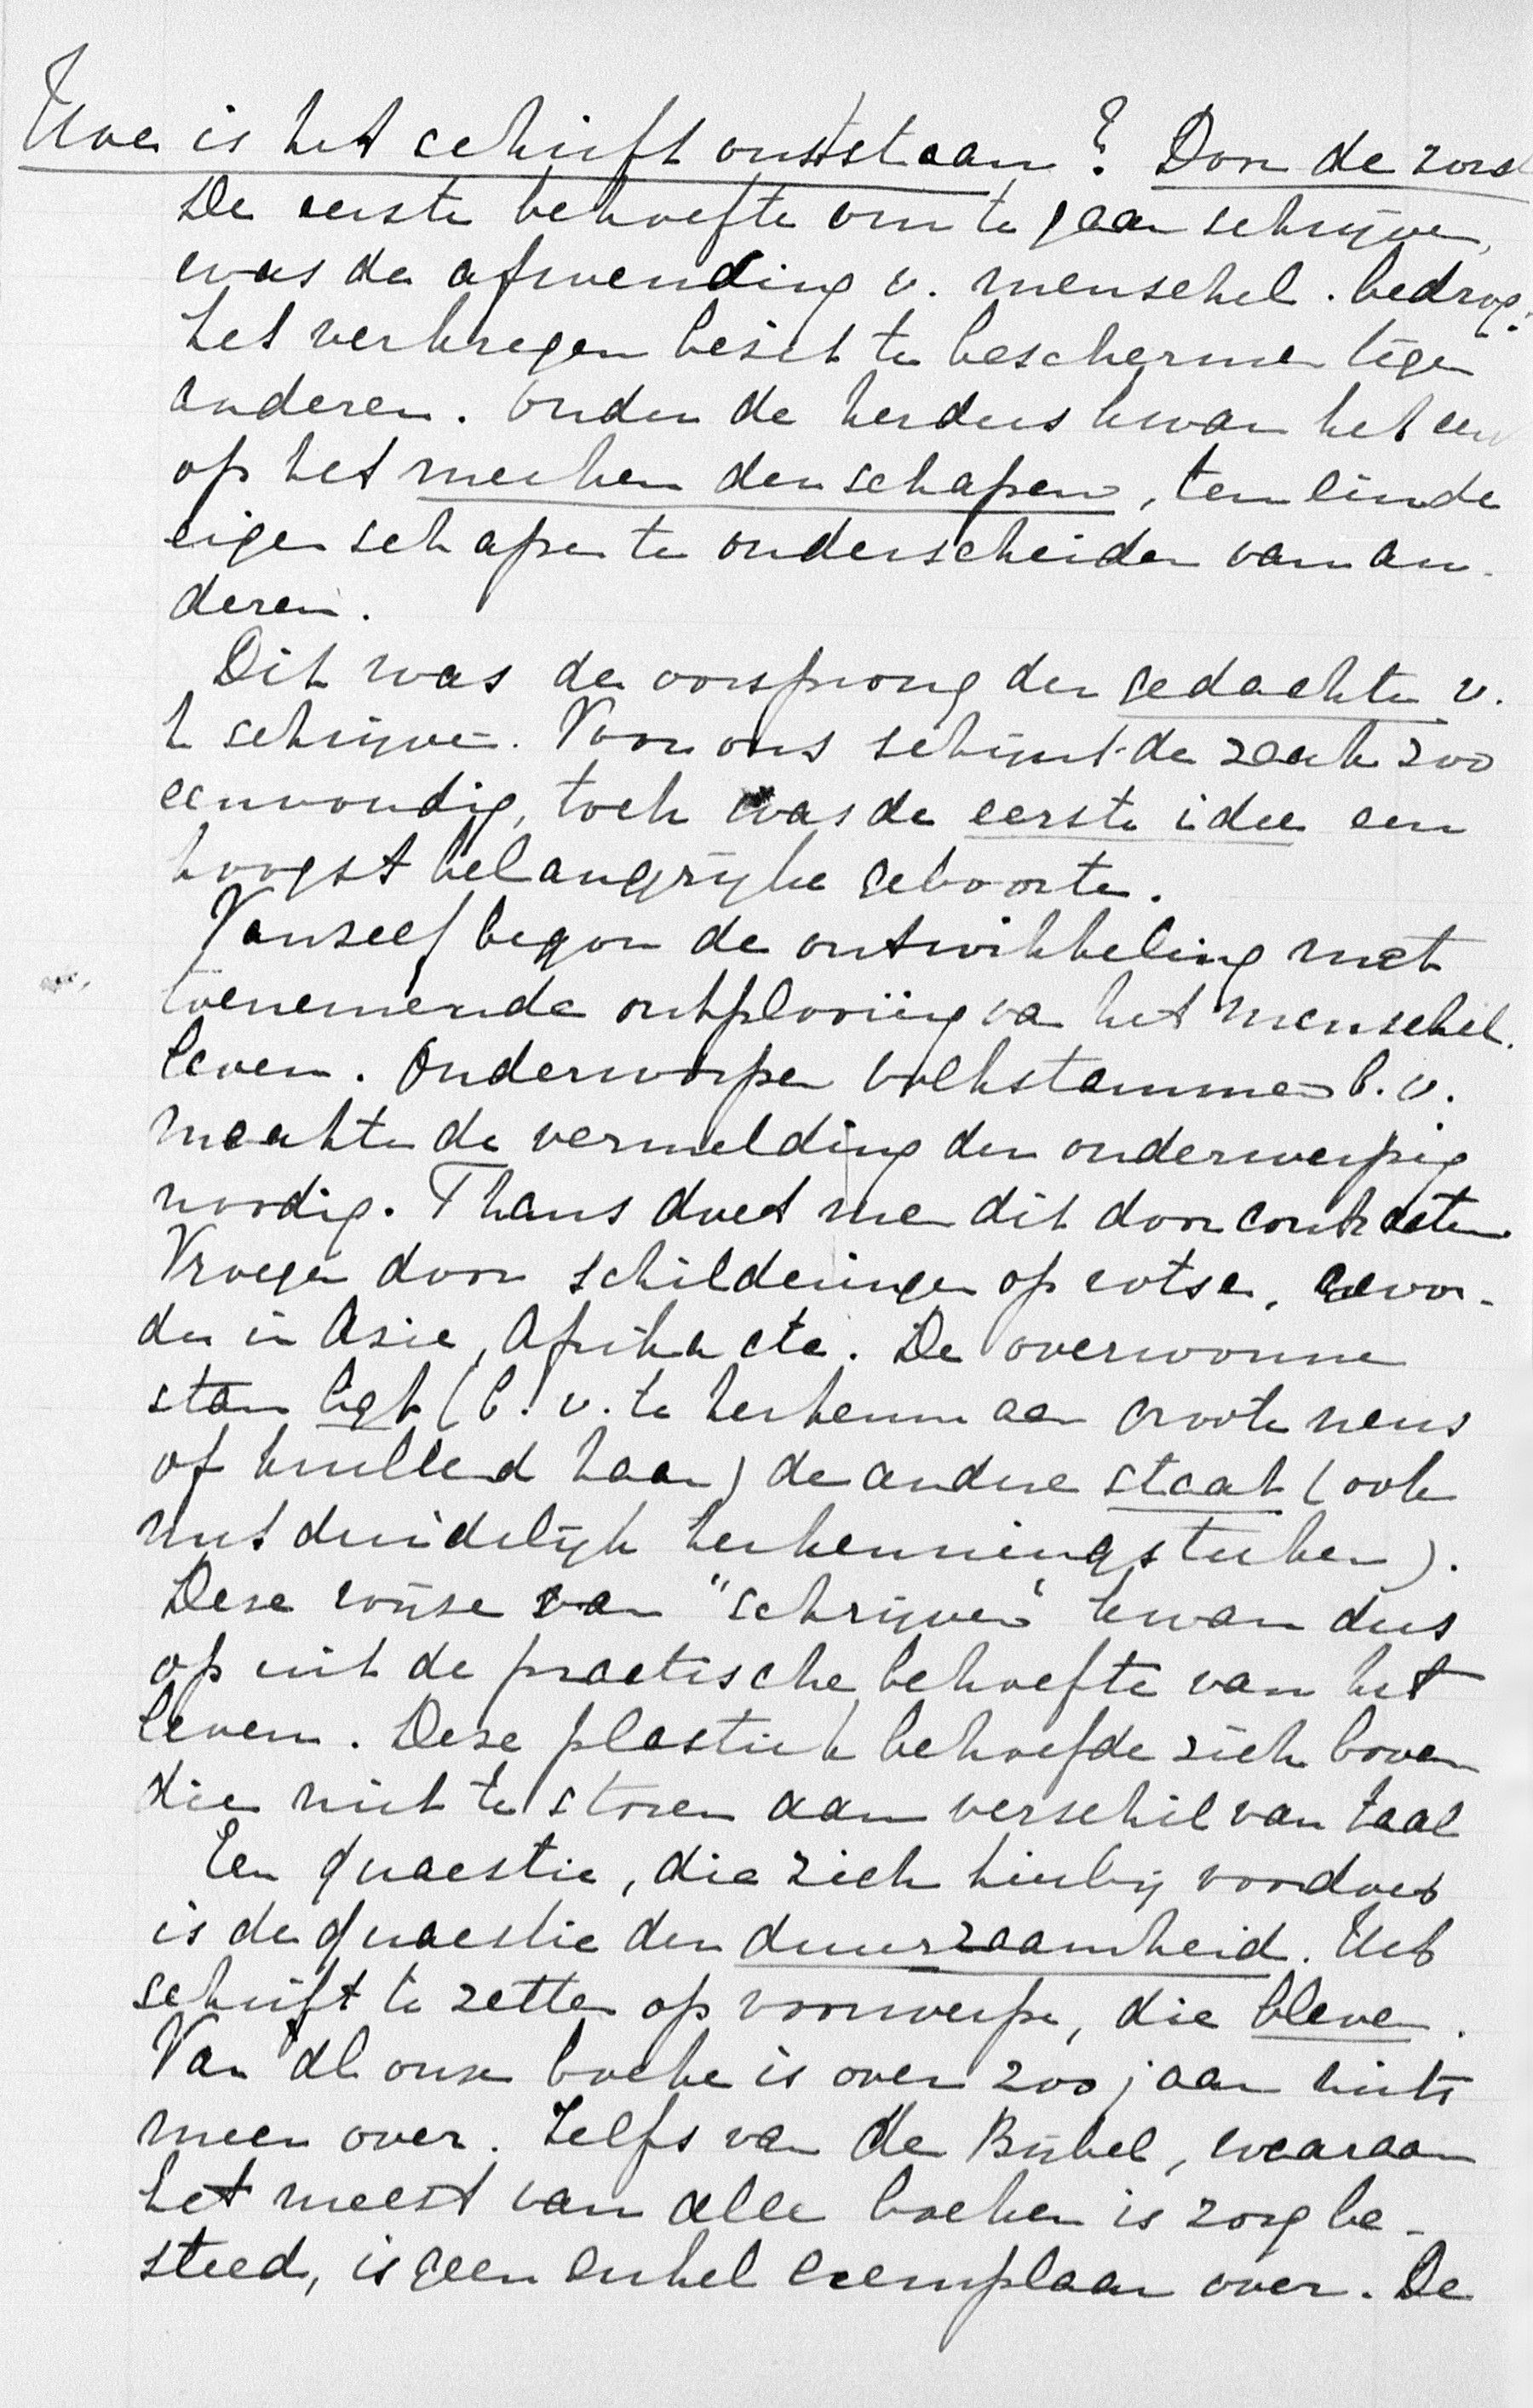 Hoe is het schrift ontstaan? Door de zond
De eerste behoefte om te gaan schrijven,
was de afwending v. menschel. bedrog:
het verkregen bezit te beschermen tegen
anderen. Onder de herders kwam het eerst
op het merken der schapen, ten einde
eigen schapen te onderscheiden van an-
deren.
Dit was de oorsprong der gedachte v.
h schrijven. Voor ons schijnt de zaak zoo
eenvoudig, toch was de eerste idee een
hoogst belangrijke geboorte.
Vanself begon de ontwikkeling met
toenemende ontplooiing van het menschel.
leven. Onderworpen volkstammen b.v.
maakten de vermelding der onderwerping
noodig. Thans doet men dit door contracten
Vroeger door schilderingen op rotsen, gevon-
den in Asie, Afrika etc. De overwonnen
stam ligt (b.v. te herkennen aan groote neus
of krullend haar) de andere staat (ook
met duidelijk herkenningsteeken).
Deze wijze van "schrijven" kwam dus
op uit de practische behoefte van het
leven. Deze plastiek behoefde zich boven
dien niet te storen aan verschil van taal
Een quaestie, die zich hierbij voordoet
is de quaestie der duurzaamheid. Het
schrift te zetten op voorwerpen, die bleven.
Van al onze boeken is over 200 jaar niets
meer over. Zelfs van de Bijbel, waaraan
het meest van alle boeken is zorg be-
steed, is geen enkel exemplaar over. De